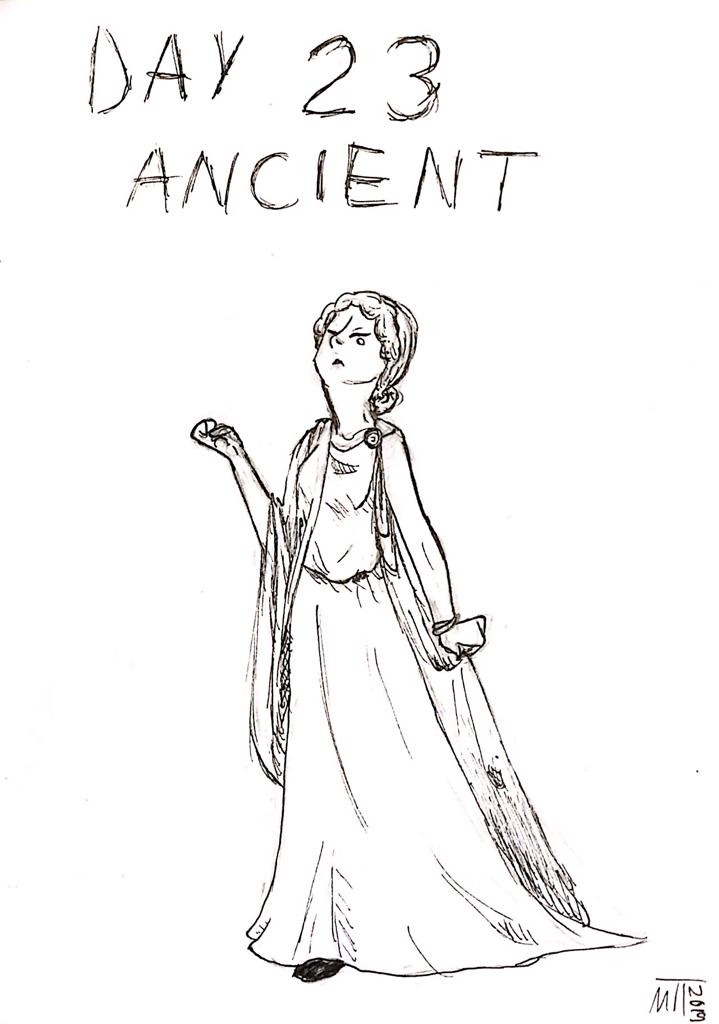 DAY 23
ANCIENT
2019